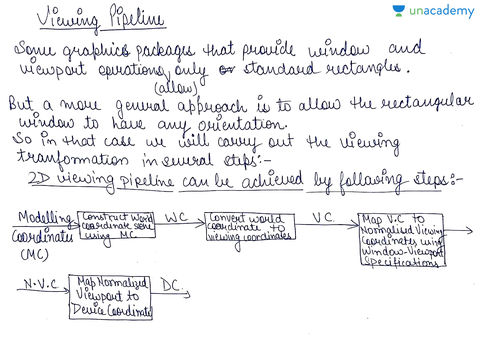 Viewing Pipeline
unacademy
Some graphics packages that provide window and
viewport operations only or standard rectangles.
(allow)
But a more general approach is to allow the rectangular
window to have any orientation.
So in that case we will carry out the viewing
tranformation in several steps:-
2D viewing pipeline can be achieved by following steps:-
Modelling
Coordinates
(MC)
Construct World
coordinate scene
using MC.
WC
Convert world
coordinate to
viewing coordinates
VC
Map V.C to
Normalized Viewing
Coordinates using
Window-Viewport
Specifications
N.V.C
Map Normalized
Viewport to
Device Coordinate
DC.